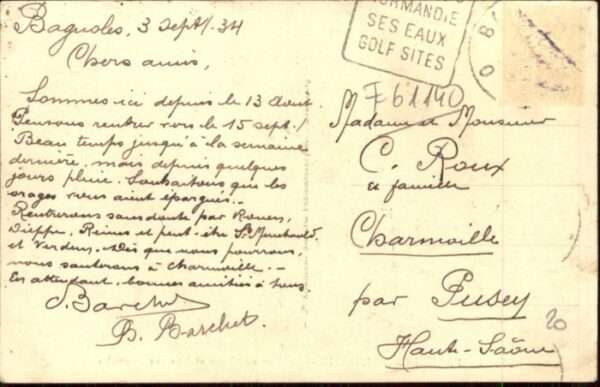 Bagnoles, 3 Sept/. 34
Chers amis,
Sommes ici depuis le 13 Aout.
Pensons rentrer vers le 15 sept./
Beau temps jusqu'à la semaine
dernière, mais depuis quelques
jours pluie. Souhaitons que les
orages vous aient épargnés. -
Rentrerons sans doute par Rouen,
Dieppe, Reims et peut-être Ste Menehould
et Verdun. Dès que nous pourrons,
nous sauterons à Charmoille. -
En attendant, bonnes amitiés à tous.
B. Barchet
NORMANDIE
SES EAUX
GOLF SITES
8
0
F 61140
Madame & Monsieur
C. Roux
& famille
Charmoille
par Pusey
Haute-Saône
20